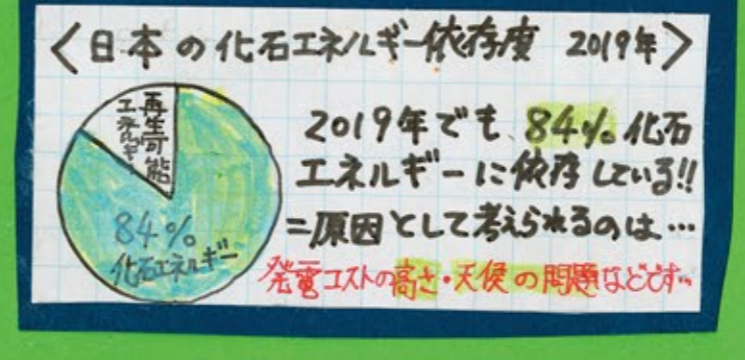 <日本の化石エネルギー依存度 2019年>
再生可能
エネルギー
84%
化石エネルギー
2019年でも、84%化石
エネルギーに依存している!!
=原因として考えられるのは…
発電コストの高さ・天候の問題などです…